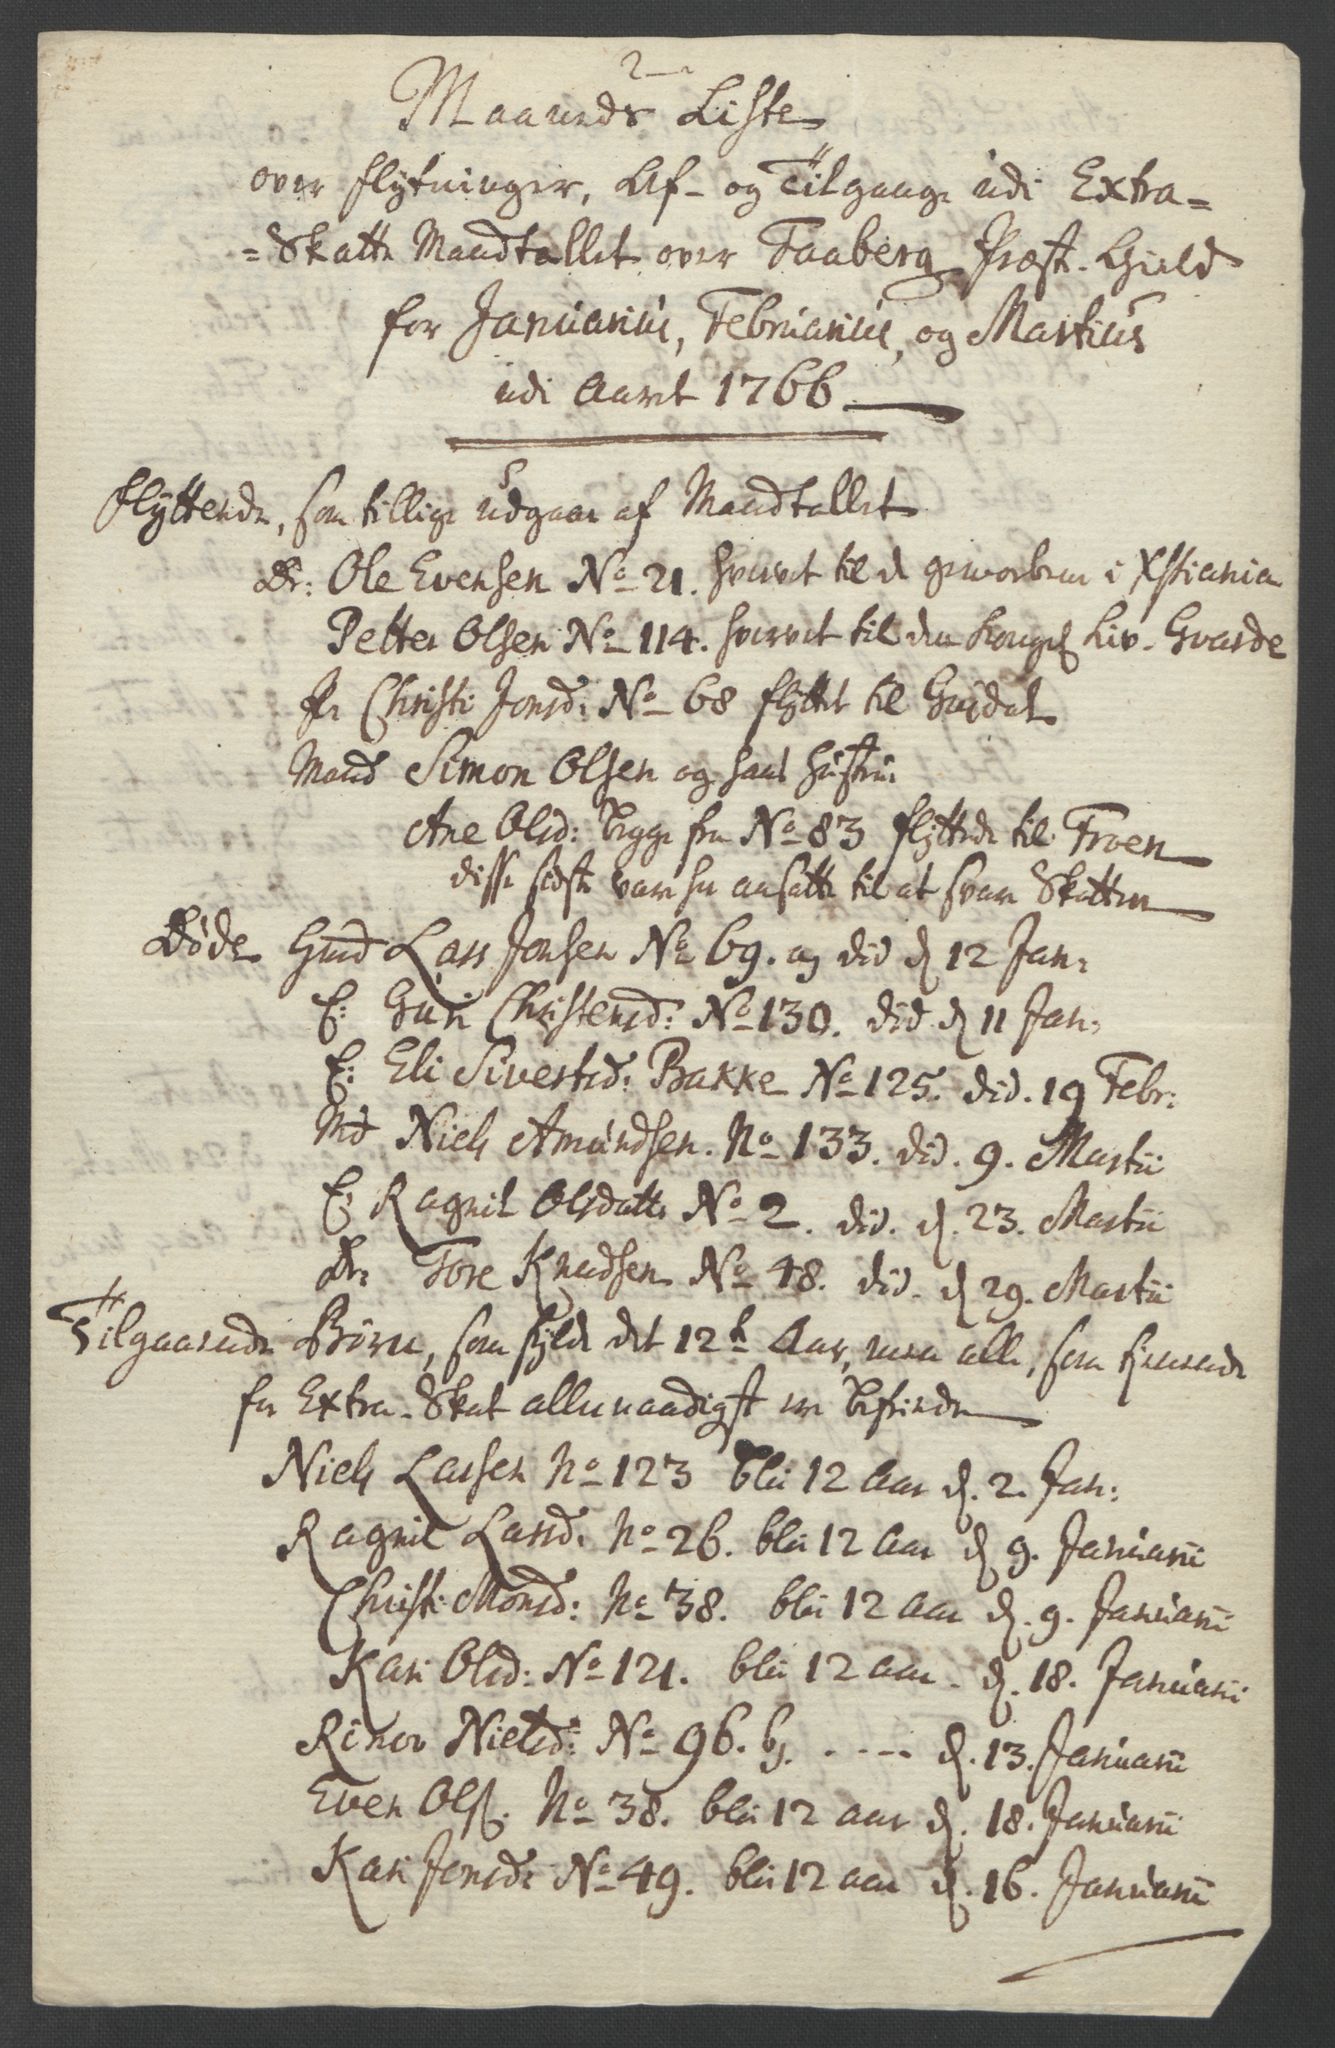 Maaneds Liste
over flytninger, Af- og Tilgange udi Extra=
=Skatte Mandtallet over Faaberg Præste-Gield
for Januarius, Februarius, og Martius
udi Aaret 1766
flyttende, som tillige udgaar af Mandtallet
Dr: Ole Evensen No 21. hvervet til d gevorbne i Xstiania
Petter Olsen No 114. hvervet til den kongel Liv-Gvarde
P. Christi Jonsd: No 68 flyttet til Gusdal
Mand Simon Olsen og hans hustru
Ane Olsd: begge fra No 83 flyttede til Froen
disse sidste vare her ansatte til at svare Skatten
Døde Gmd Lars Jonsen No 69. døde d 12 Jan:
E: Guri Christensd: No 130. død d 11 Jan:
E: Eli Sivestsd: Bakke No 125. død. 19 Febr:
Md Niels Amundsen. No 133. død. 9. Martii
E: Ragnil Olsdatter No 2. død. d. 23. Martii
Dr: Tore Knudsen No 48. død. d 29. Martii
Tilgaaende Børn, som fylde det 12te Aar, men alle, som henhørende
for Extra-Skat allernaadigst ere befriede
Niels Larsen No 123 blev 12 Aar d. 2. Jan:
Ragnil Larsd: No 26. blev 12 Aar d 9. Januarii
Christi Monsd: No 38. blev 12 Aar d. 9. Januarii
Kari Olsd: No 121. blev 12 aar. d. 18. Januarii
Rinov Nielsd: No 96. b. ---- d. 13. Januarii
Even Ols. No 38. blev 12 aar d. 18. Januarii
Kari Jonsd: No 49. blev 12 aar d. 16. Januarii